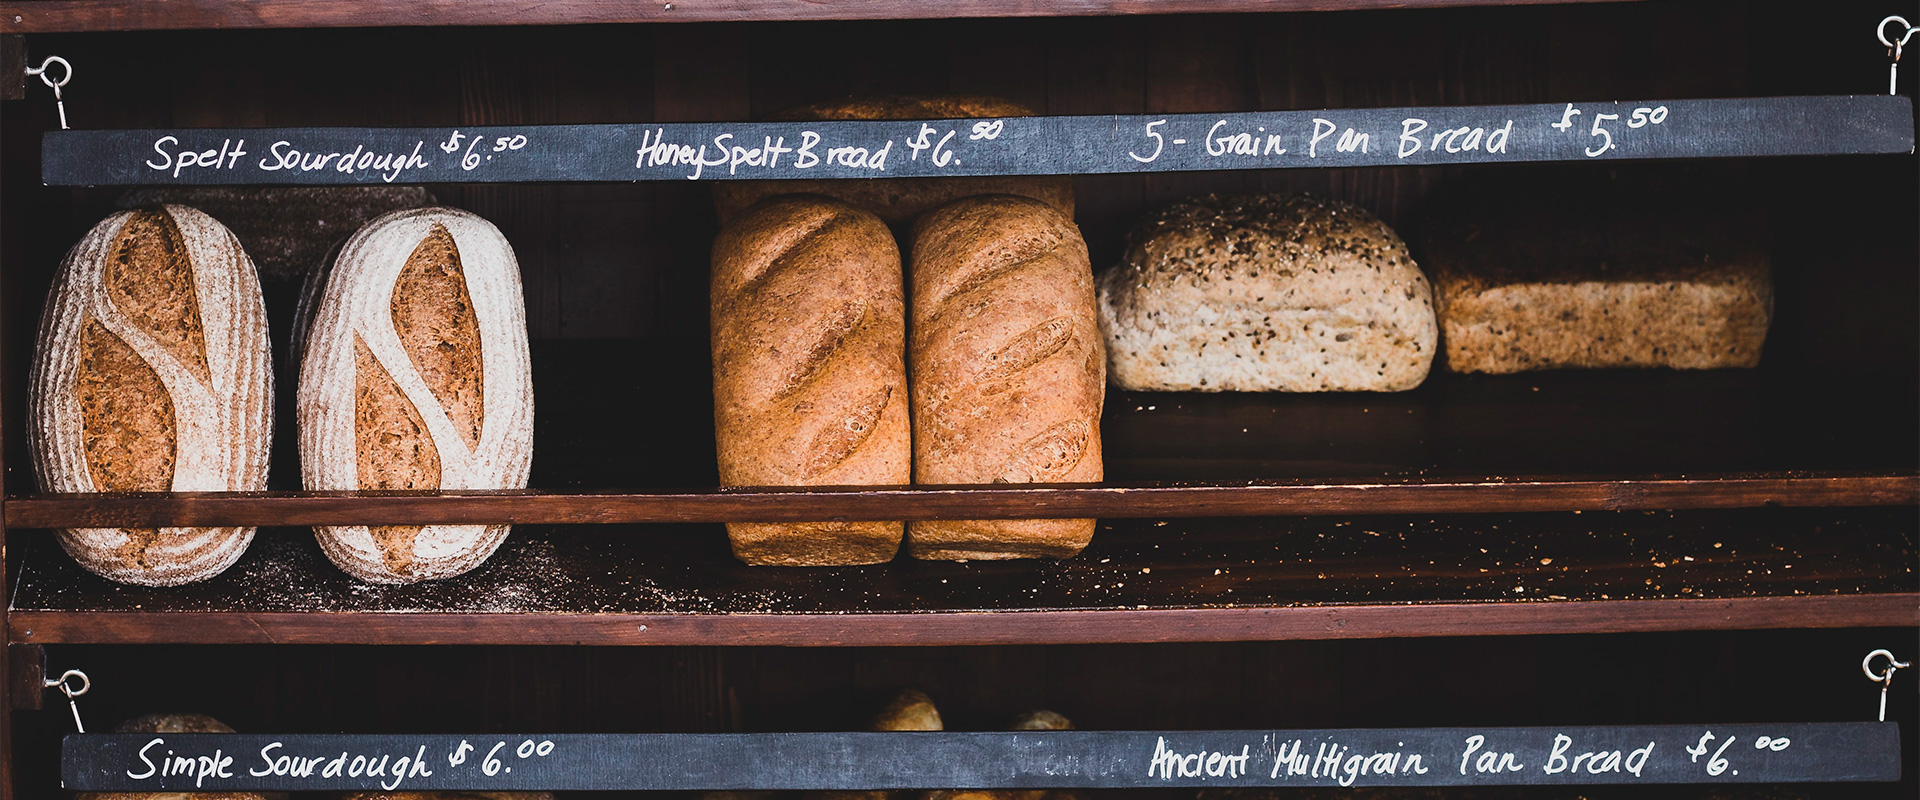 Spelt Sourdough $6.50 Honey Spelt Bread $6.50 5-Grain Pan Bread $5.50
Simple Sourdough $6.00 Ancient Multigrain Pan Bread $6.00